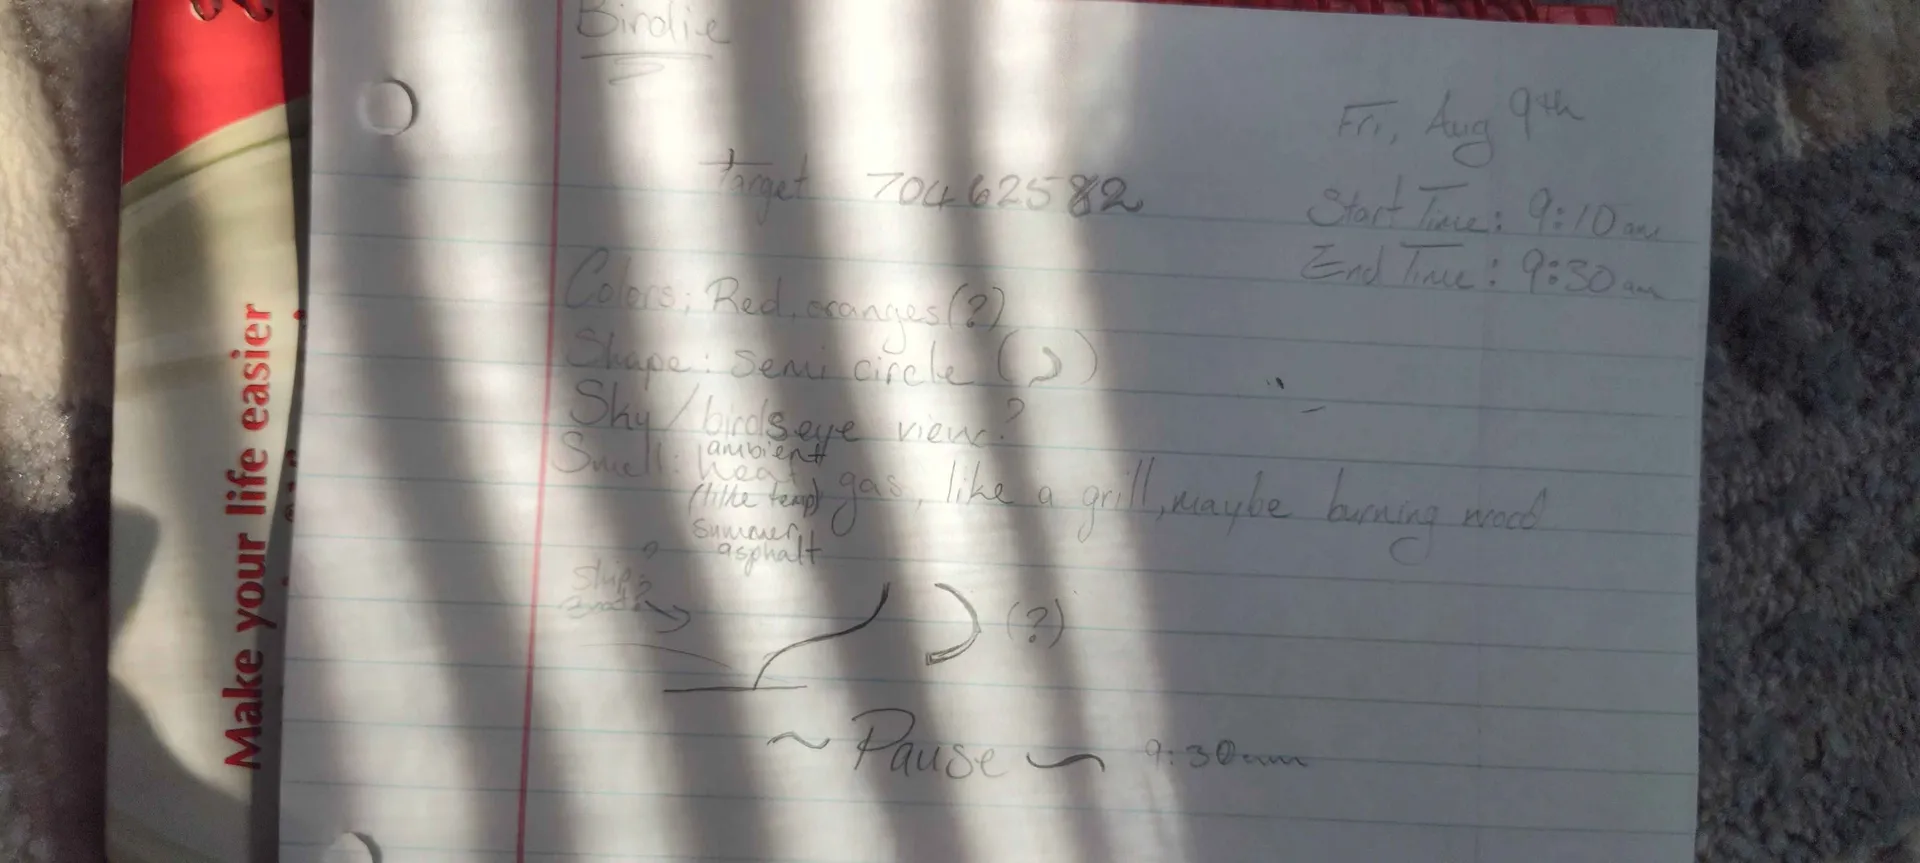 Birdie
Fri, Aug 9th
Target 70462582
Start Time: 9:10am
End Time: 9:30am
Colors: Red, oranges (?)
Shape: semi circle ( )
Sky/birdseye view?
ambient
Smell: heat gas, like a grill, maybe burning wood
(like temp)
summer
asphalt
ship?
(?)
~ Pause ~ 9:30am
Make your life easier